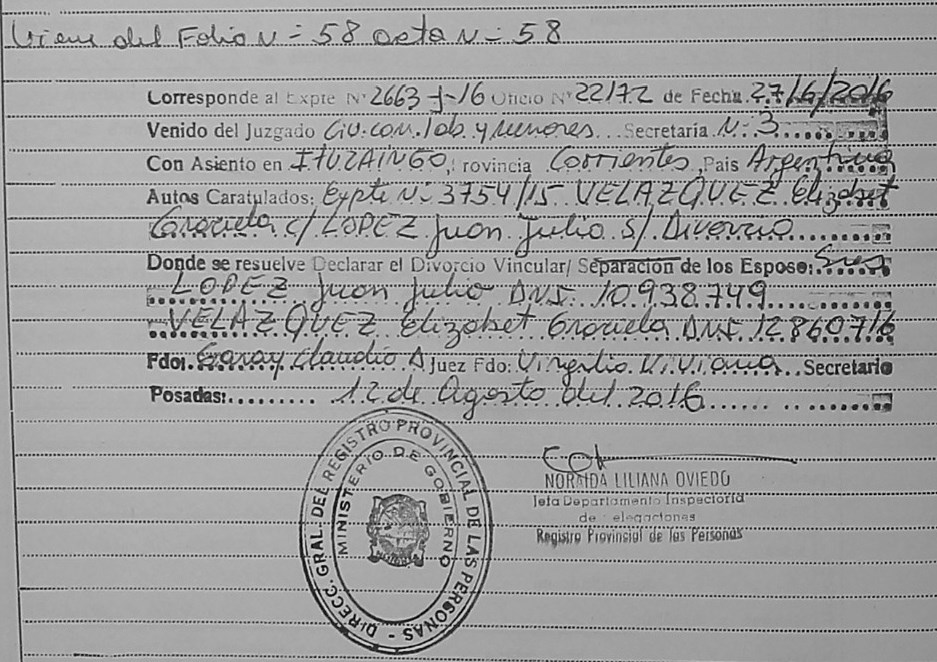 Viene del Folio N= 58 acta N= 58
Corresponde al Expte Nº 2663-J-16 Oficio Nº 22172 de Fecha: 27/6/2016
Venido del Juzgado Civ. com. lab. y menores... Secretaría N: 3
Con Asiento en ITUZAINGO, rovincia Corrientes, País Argentina
Autos Caratulados: Expte N: 3754/15 VELAZQUEZ Elizabet
Graciela c/ LOPEZ Juan Julio s/ Divorcio
Donde se resuelve Declarar el Divorcio Vincular/ Separación de los Esposo: Sres
LOPEZ Juan Julio DNI. 10.938.749
VELAZQUEZ Elizabet Graciela DNI. 12860716
Fdo: Garay Claudio A Juez Fdo: Virgilio Viviana... Secretario
Posadas:........ 12 de Agosto del 2016
DIRECC. GRAL. DEL REGISTRO PROVINCIAL DE LAS PERSONAS
MINISTERIO DE GOBIERNO
NORAIDA LILIANA OVIEDO
Jefa Departamento Inspectoría
de elegaciones
Registro Provincial de las Personas